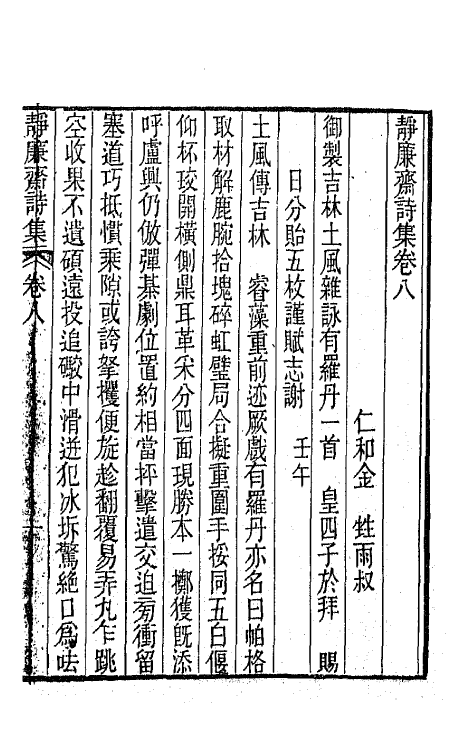 靜廉齋詩集卷八
仁和金 甡雨叔
御製吉林土風雜詠有羅丹一首 皇四子於拜 賜
日分貽五枚謹賦志謝 壬午
土風傳吉林 睿藻重前迹厥戲有羅丹亦名曰帕格
取材解鹿腕拾塊碎虹璧局合擬重圍手挼同五白偃
仰杯珓開橫側鼎耳革采分四面現勝本一擲獲旣添
呼盧興仍倣彈棊劇位置約相當抨擊遣交迫旁衝留
塞道巧抵慣乘隙或誇拏攫便旋趁翻覆易弄丸乍跳
空收果不遺碩遠投追礮中滑迸犯冰坼驚絶口爲呿
靜廉齋詩集 卷八 一